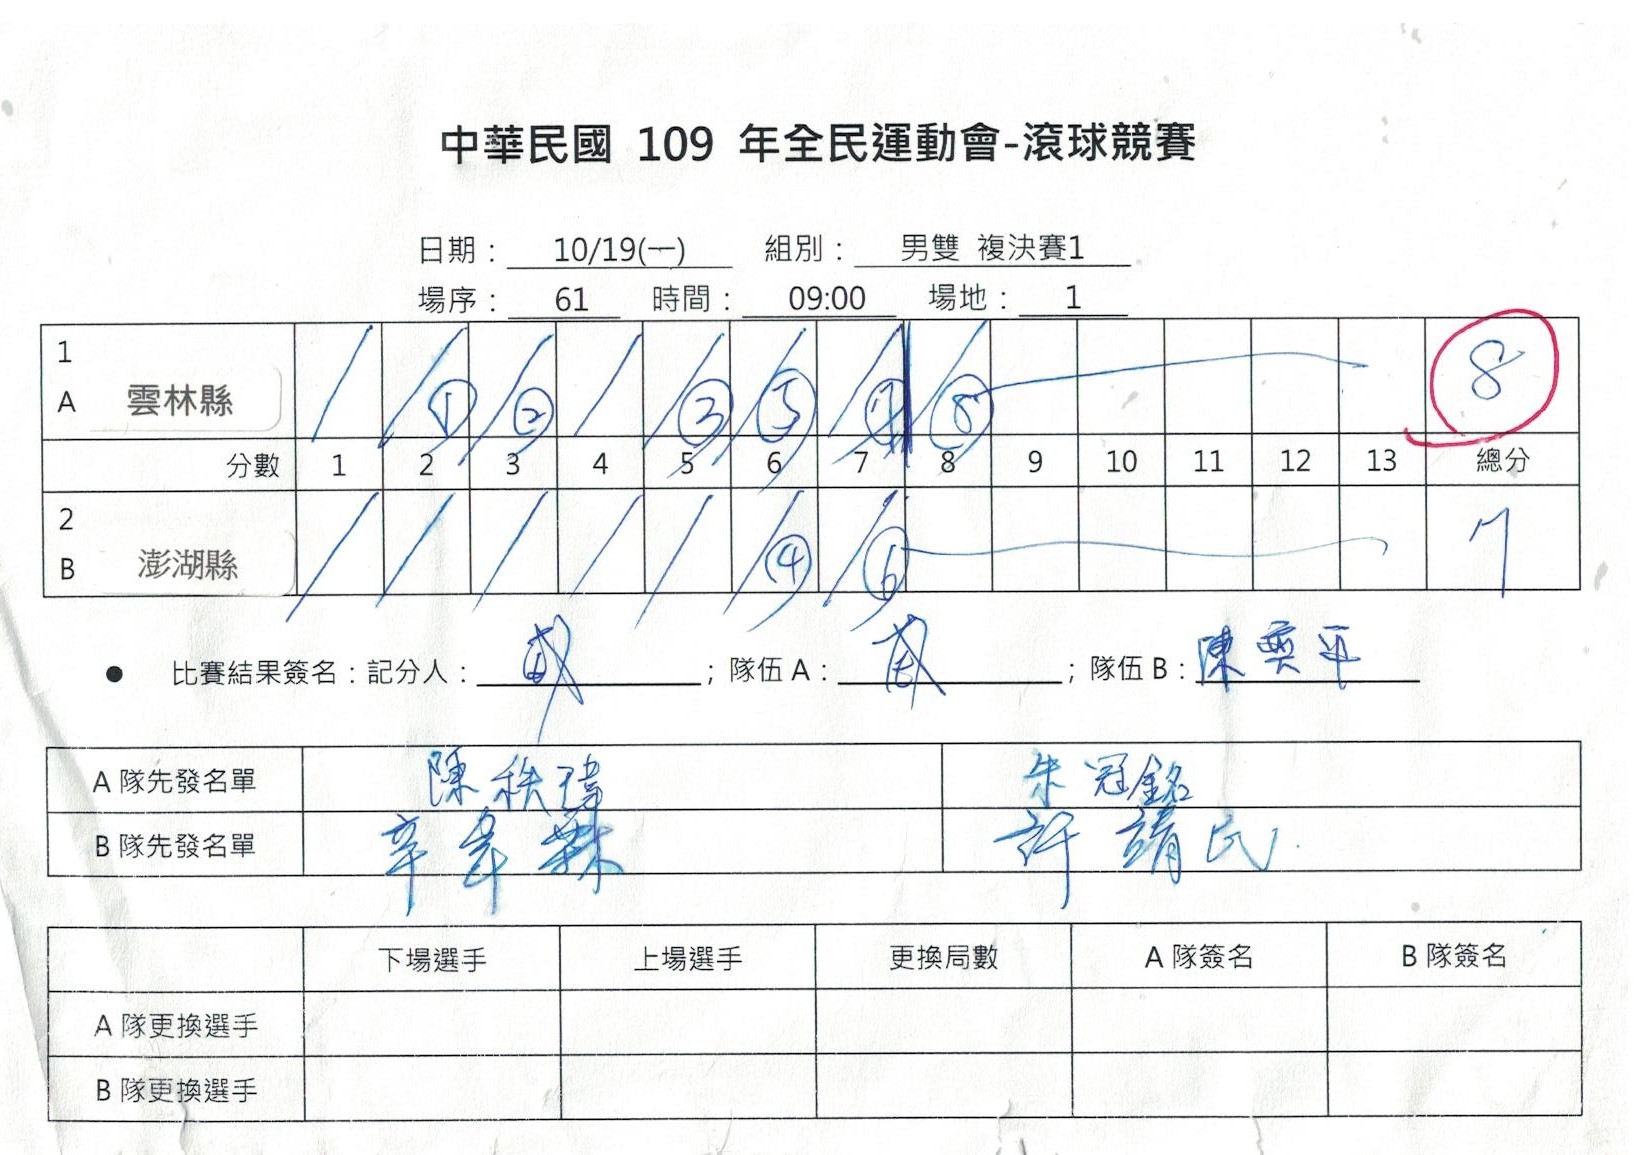 中華民國 109 年全民運動會-滾球競賽
日期： 10/19(一) 組別： 男雙 複決賽1
場序： 61 時間： 09:00 場地： 1
1
A 雲林縣 ① ② ③ ⑤ ⑦ ⑧ 8
分數 1 2 3 4 5 6 7 8 9 10 11 12 13 總分
2
B 澎湖縣 ④ ⑥ 7
● 比賽結果簽名：記分人： ；隊伍 A： ；隊伍 B：陳奕平
A 隊先發名單 陳秩瑋 朱冠銘
B 隊先發名單 辛 許靖民
下場選手 上場選手 更換局數 A 隊簽名 B 隊簽名
A 隊更換選手
B 隊更換選手